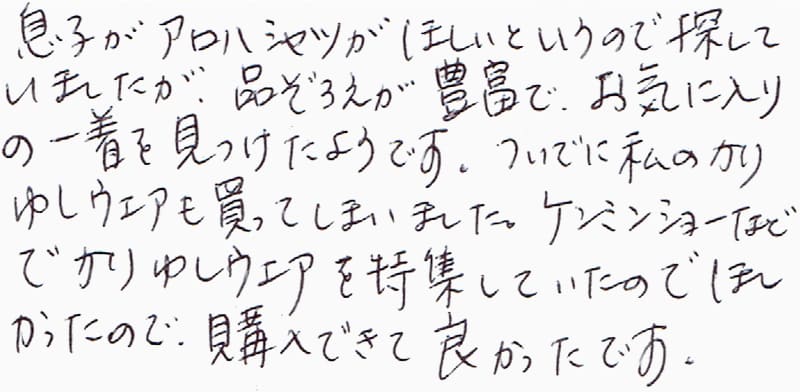 息子がアロハシャツがほしいというので探して
いましたが、品ぞろえが豊富で、お気に入り
の一着を見つけたようです。ついでに私のかり
ゆしウェアも買ってしまいました。ケンミンショーなど
でかりゆしウェアを特集していたのでほし
かったので、購入できて良かったです。